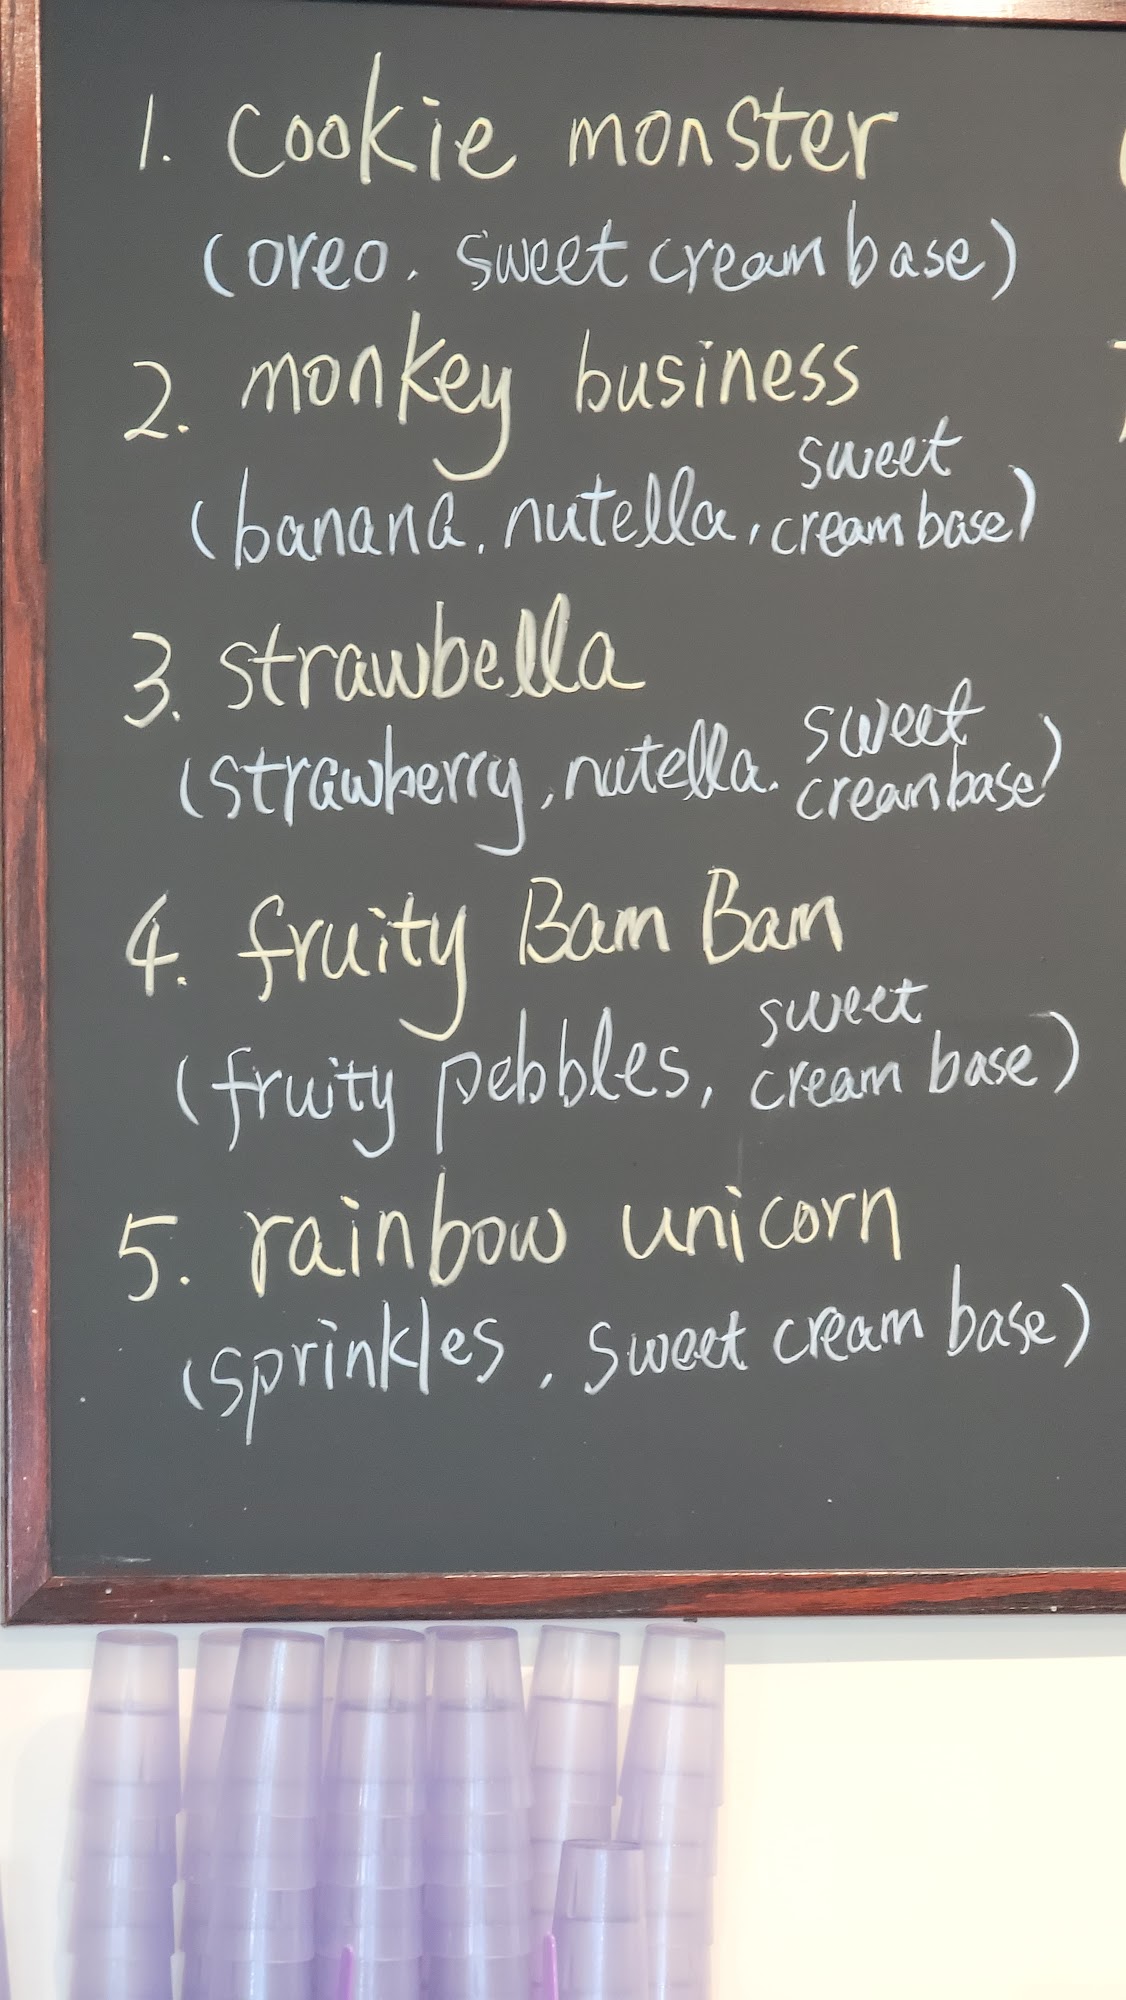 1. cookie monster
(oreo. sweet cream base)
2. monkey business
(banana, nutella, sweet
cream base)
3. strawbella
(strawberry, nutella. sweet
cream base)
4. fruity Bam Bam
(fruity pebbles, sweet
cream base)
5. rainbow unicorn
(sprinkles, sweet cream base)